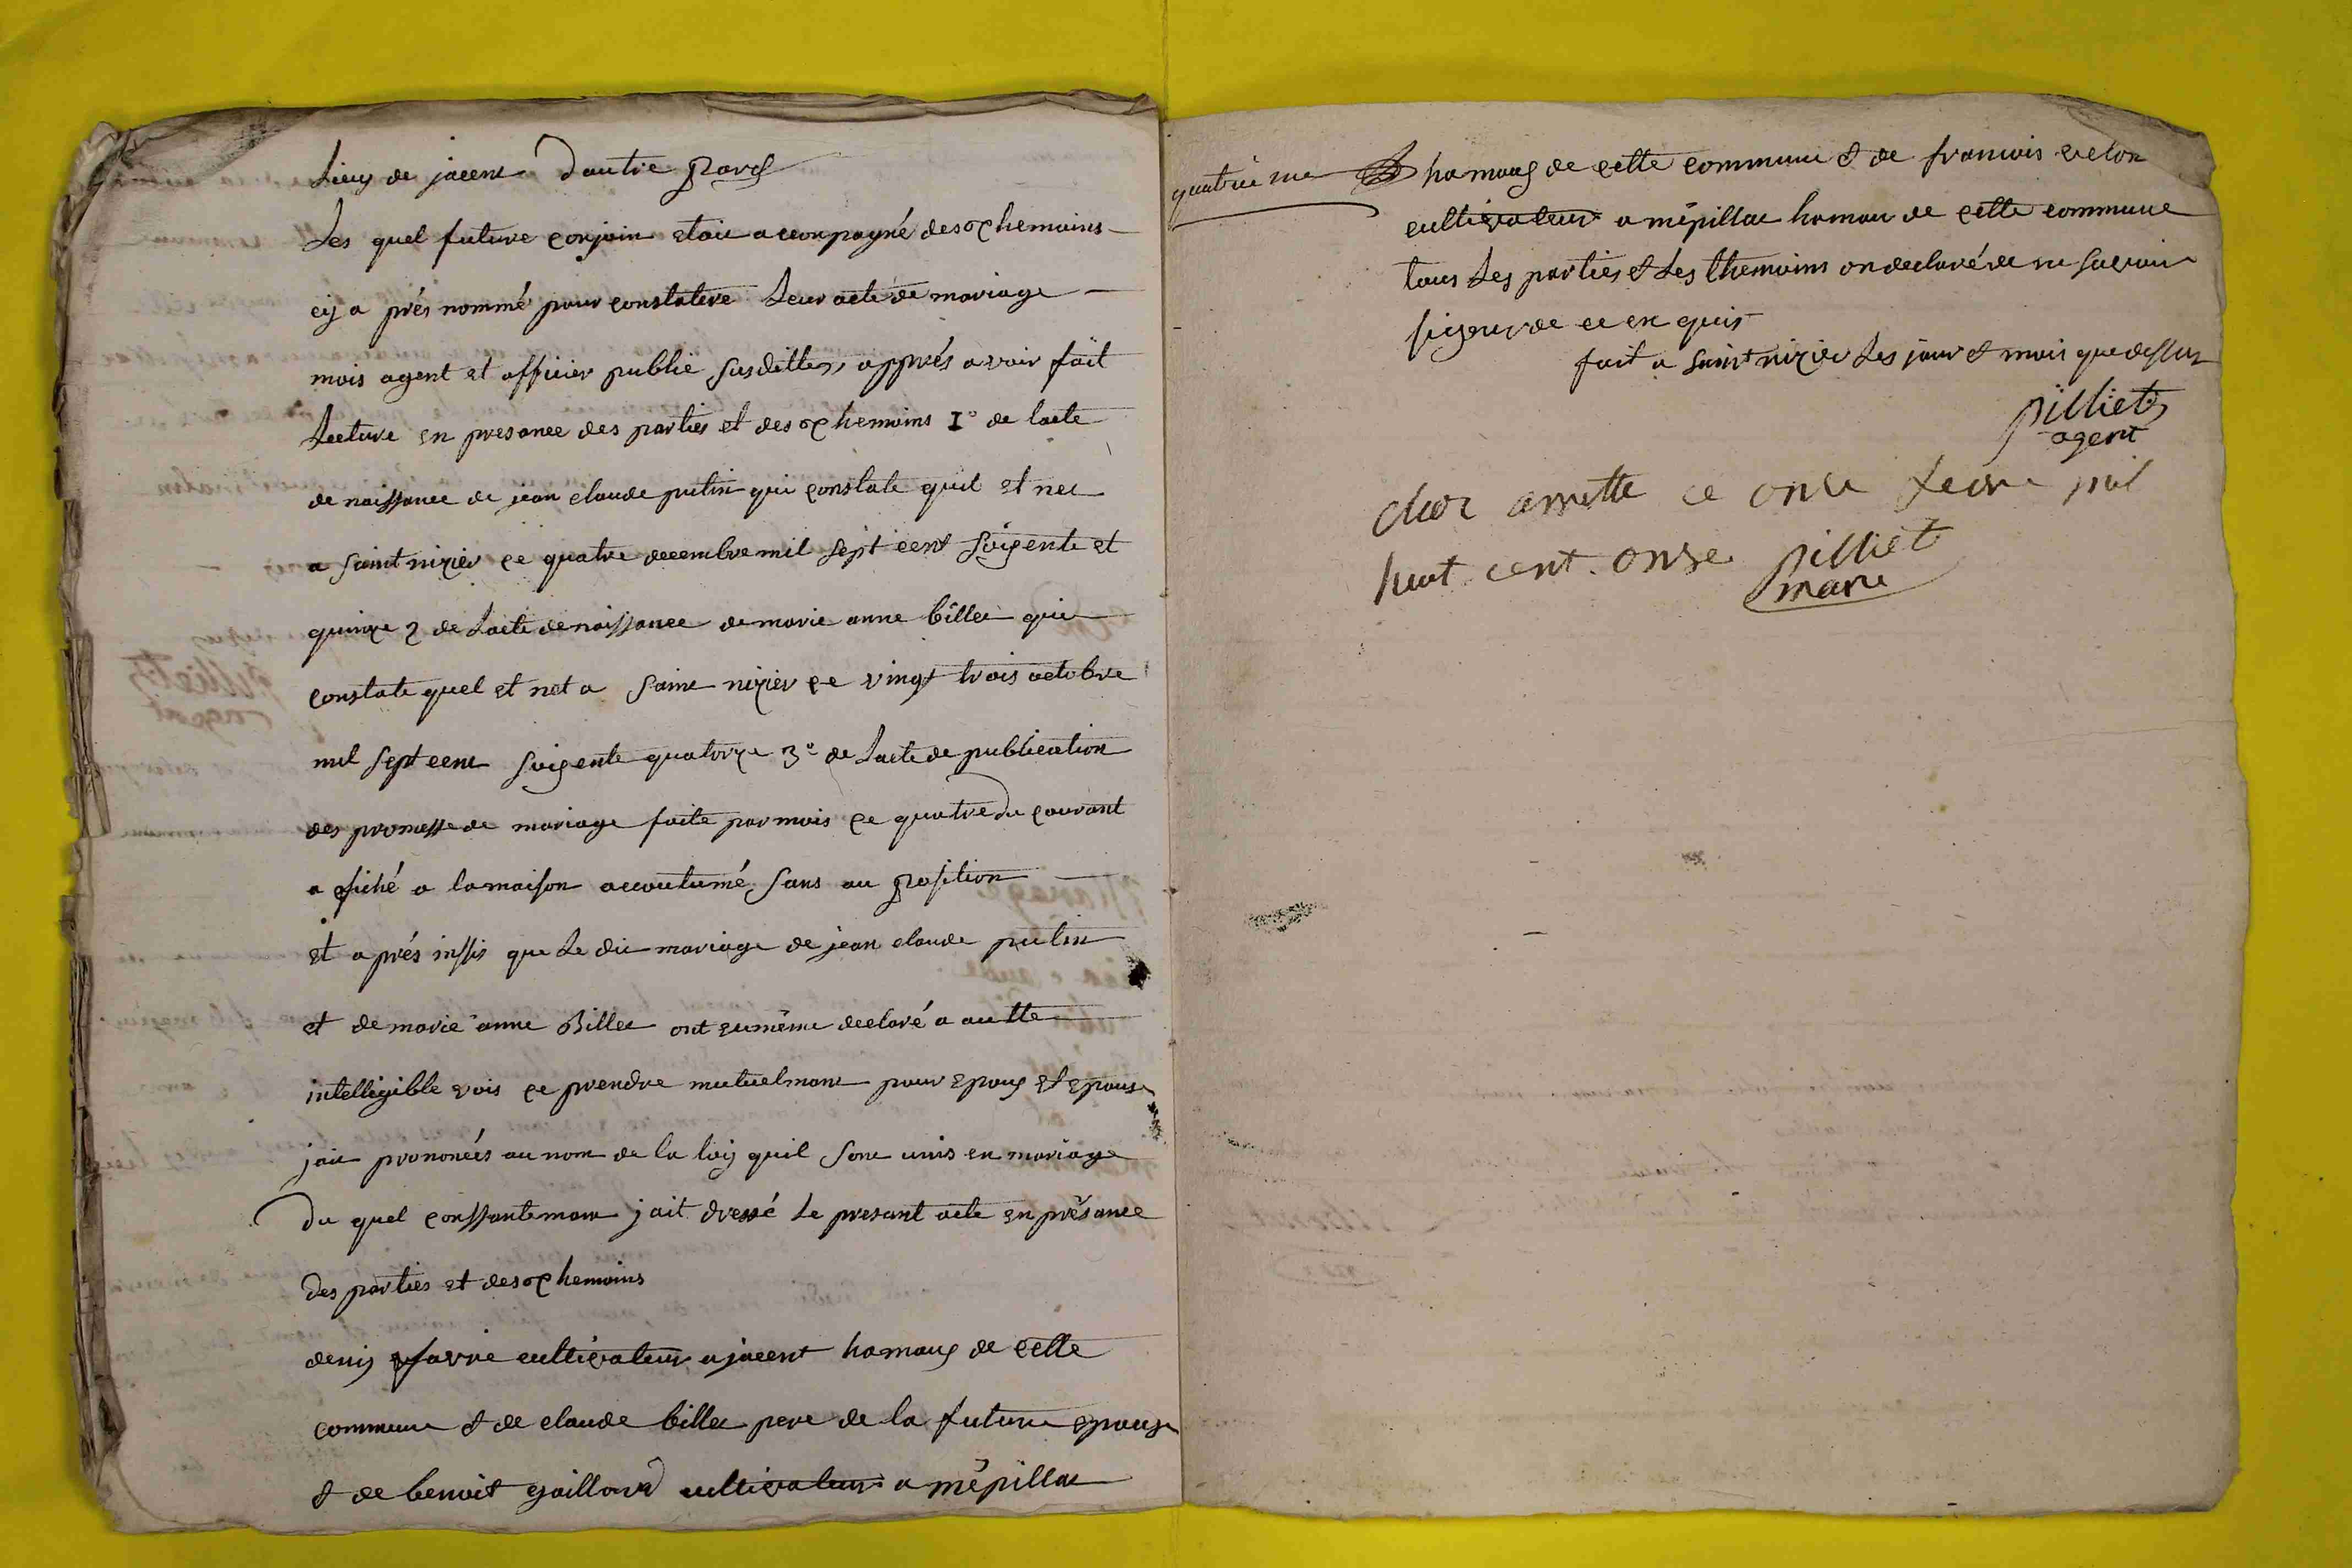 Lieux de jacent d'autre pars
Les quel future conjoin etoit accompagné des ss themoins
cij a prés nommé pour constatere Leur acte de mariage
mois agent et officier public susdittes, apprés avoir fait
Lecture en presance des parties et des ss themoins 1° de lacte
de naissance de jean claude putin qui constate quil et net
a saint nizier ce quatre decembre mil sept cent soigente et
quinze 2 de Lacte de naissance de marie anne billet qui
constate quel et net a saint nizier ce vingt trois octobre
mil sept cent soigente quatorze 3° de Lacte de publication
des promesse de mariage faite par mois ce quatre du courant
a fiché a la maison accoutumé sans au position
et aprés inssis que Le dit mariage de jean claude putin
et de marie anne Billet ont eu même declaré a autte
intelligible vois ce prendre mutuelmant pour epoux et epouse
jait prononcés au nom de la loij quil sont unis en mariage
Du quel conssantemant jait dressé Le presant acte en présance
Des parties et des ss themoins
denis favre cultivateur a jacent hamaux de cette
commune & de claude billet pere de la future epouse
& de benoit gaillard cultivateur a mépillat
quatriéme hamaux de cette commune & de francois velon
cultivateur a mépillat hamau de cette commune
tous Les parties & Les themoins on declaré de ne savoir
signer de ce en quis
fait a saint nizier Les jour & mois que dessus
pilliet
agent
cloz arrette ce onze fevrie mil
huit cent onze pilliet
maire